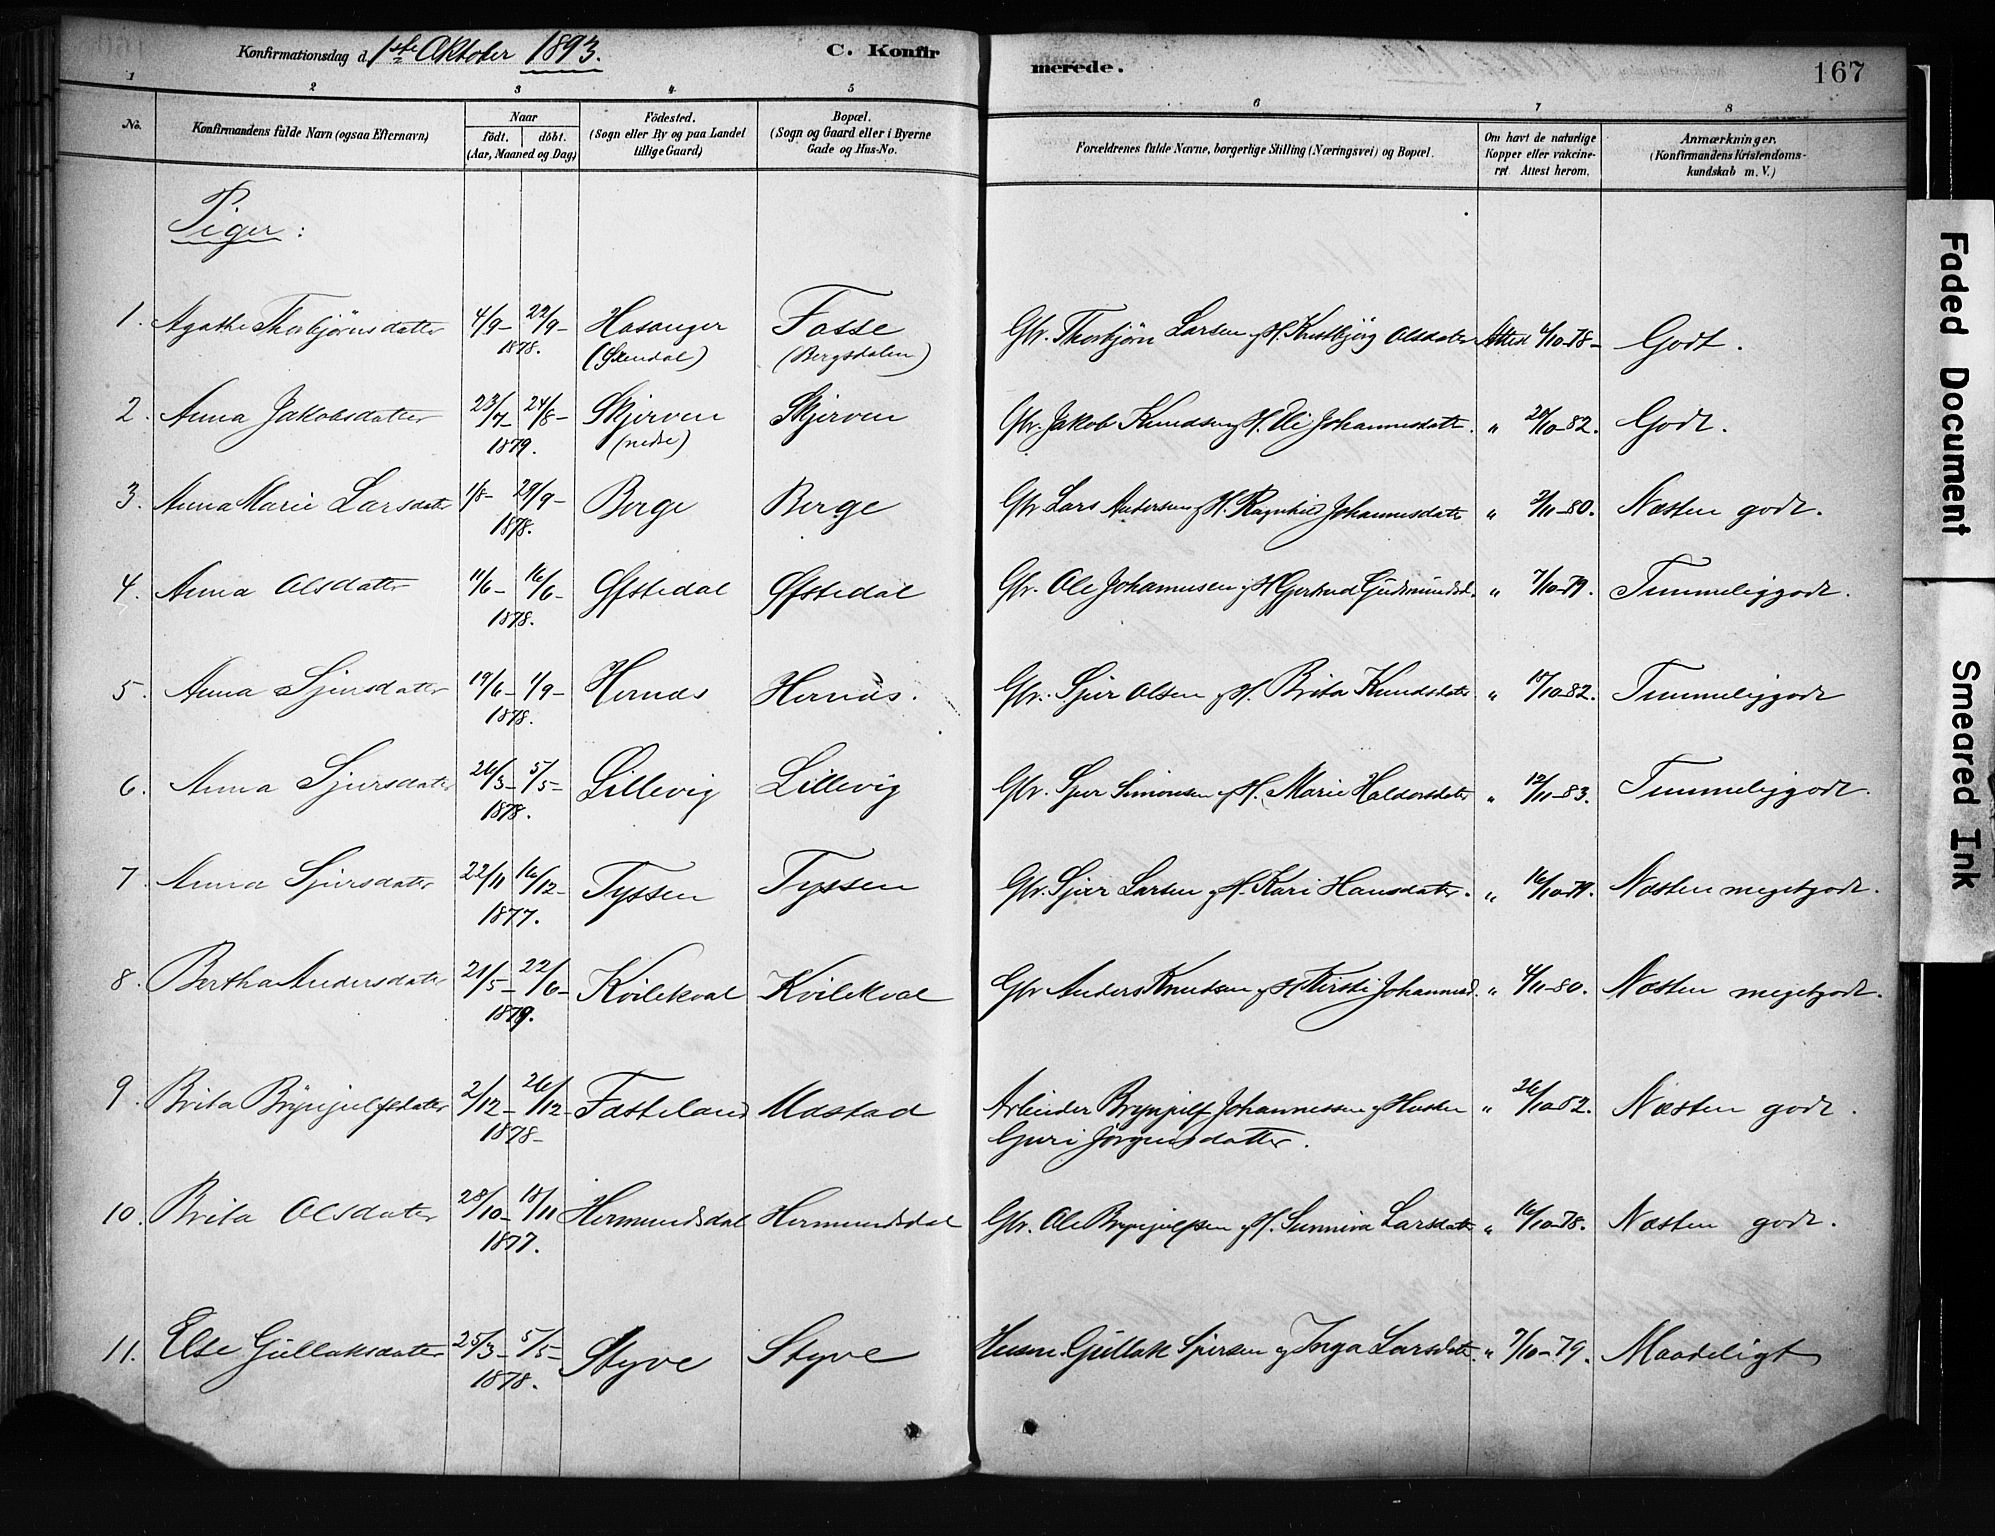 Konfirmationsdag d. 1ste Oktober 1893.
C. Konfirmerede.
167
1 2 3 4 5 6 7 8
No.
Konfirmandens fulde Navn (ogsaa Efternavn)
Naar
födt. döbt.
(Aar, Maaned og Dag)
Födested.
(Sogn eller By og paa Landet tillige Gaard)
Bopæl.
(Sogn og Gaard eller i Byerne Gade og Hus-No.
Forældrenes fulde Navne, borgerlige Stilling (Næringsvei) og Bopæl.
Om havt de naturlige Kopper eller vakcineret. Attest herom.
Anmærkninger.
(Konfirmandens Kristendomskundskab m. V.)
Piger:
1. Agathe Thorbjørnsdatter 4/9- 22/9- 1878. Hosanger Fosse (Bergsdalen) Gbr. Thorbjørn Larsen og H. Kristbjørg Olsdatter Attest 6/10-78- Godt.
2. Anna Jakobsdatter 23/7- 24/8- 1879. Skjerven (nedre) Skjerven Gbr. Jakob Knudsen og H. Eli Johannesdatt. " 20/10-82. Godt.
3. Anna Marie Larsdatt 1/8- 29/9- 1878. Berge Berge Gbr Lars Andersen og H. Ragnhild Johannesdatt " 2/11-80. Næsten godt.
4. Anna Olsdatter 11/6- 16/6- 1878. Øfstedal Øfstedal Gbr. Ole Johannesen og H Gjertrud Gudmundsd. " 7/10-79. Temmeliggodt.
5. Anna Sjursdatter 19/6- 1/9- 1878. Hernæs Hernæs. Gbr. Sjur Olsen og H. Brita Knudsdatt " 10/10-82. Temmeliggodt
6. Anna Sjursdatter 26/3- 5/5- 1878. Lillevig Lillevig Gbr. Sjur Simonsen og H. Marie Haldorsdatt " 12/11-83. Temmeliggodt.
7. Anna Sjursdatter 22/11 16/12- 1877. Tyssen Tyssen Gbr. Sjur Larsen og H. Kari Hansdatter. " 16/10-79. Næsten megetgodt.
8. Bertha Andersdatter 21/5- 22/6- 1879. Kvilekval Kvilekval Gbr Anders Knudsen og H Kirsti Johannesd. " 4/11-80. Næsten megetgodt.
9. Brita Brynjulfsdatter 2/12- 26/12- 1878- Fasteland Mostad Arbeider Brynjulf Johannessen og Hustru " 26/10-82. Næsten godt.
Guri Jørgensdatter.
10. Brita Olsdatter 28/10- 18/11 1877. Hermundsdal Hermundsdal Gbr. Ole Brynjulfsen og H. Sunniva Larsdatt " 16/10-78. Næsten godt.
11. Else Gullaksdatter 25/3- 5/5- 1878. Styve Styve Husm. Gullak Sjursen og Inga Larsdatt. " 7/10-79. Maadeligt
Faded Document
Smeared Ink